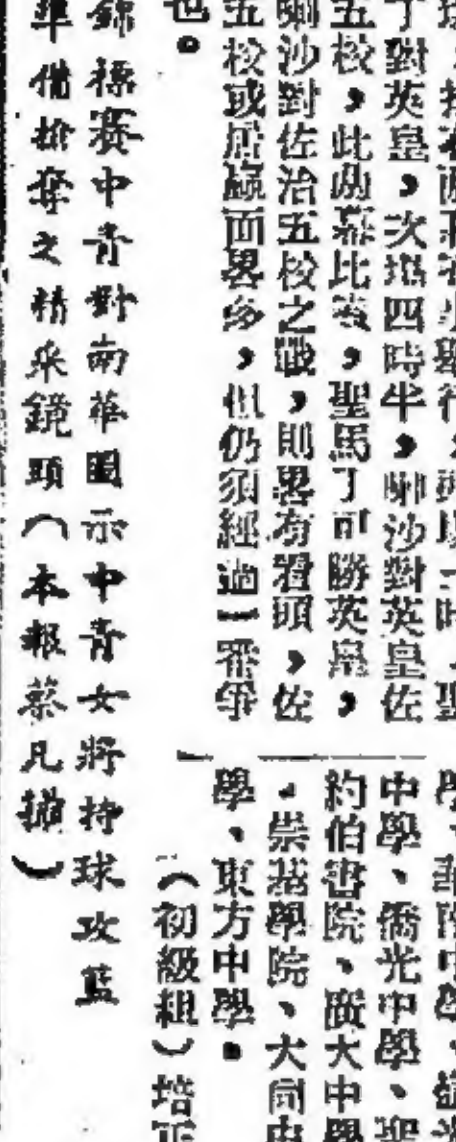 丁對英皇，次場四時半，喇沙對英皇佐
五校，此兩幕比賽，聖馬丁可勝英皇，
喇沙對佐治五校之戰，則畧有看頭，佐
五校或居贏面畧多，但仍須經過一番爭
也。
中學、僑光中學、聖
約伯書院、廣大中學
、崇基學院、大同中
學、東方中學。
（初級組）培正
錦標賽中青對南華圖示中青女將持球攻籃
準備搶奪之精采鏡頭（本報蔡凡攝）